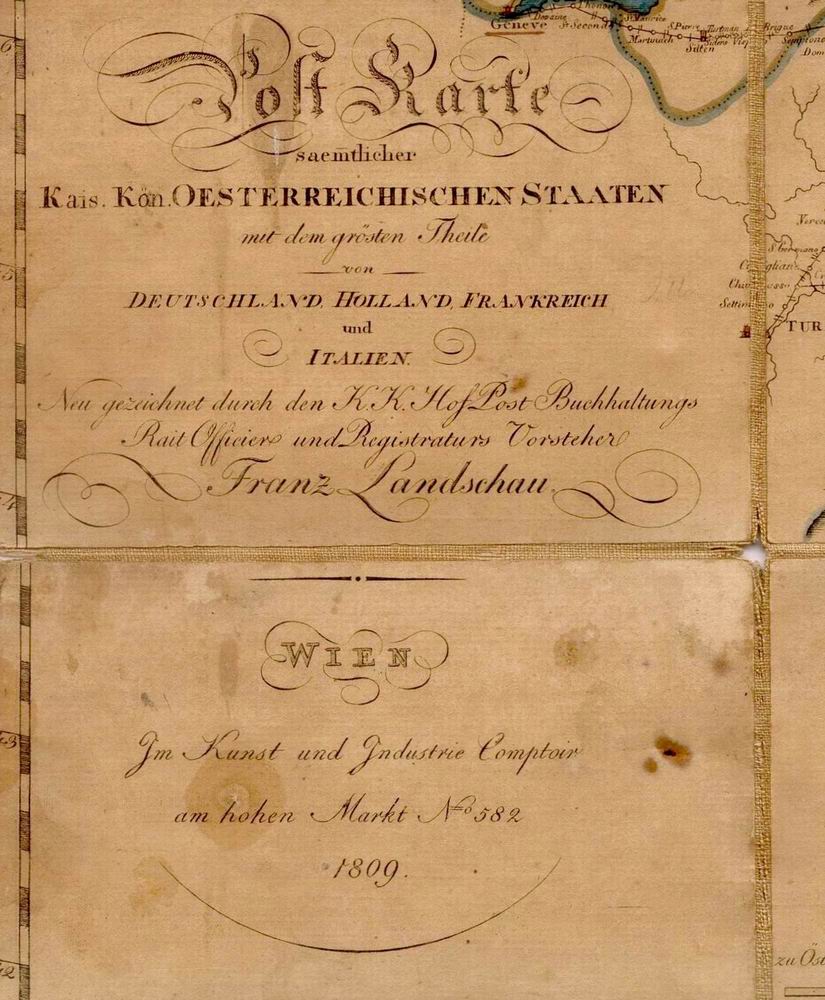 Genève
S. Maurice
Martinach
S. Pierre
Sitten
Brigue
Post Karte
saem̅tlicher
Kais. Kön. OESTERREICHISCHEN STAATEN
mit dem grösten Theile
von
DEUTSCHLAND, HOLLAND, FRANKREICH
und
ITALIEN.
TUR
Neu gezeichnet durch den K. K. Hof Post Buchhaltungs
Rait Officier und Registraturs Vorsteher
Franz Landschau.
WIEN
Im Kunst und Industrie Comptoir
am hohen Markt No 582
1809.
zu Öst